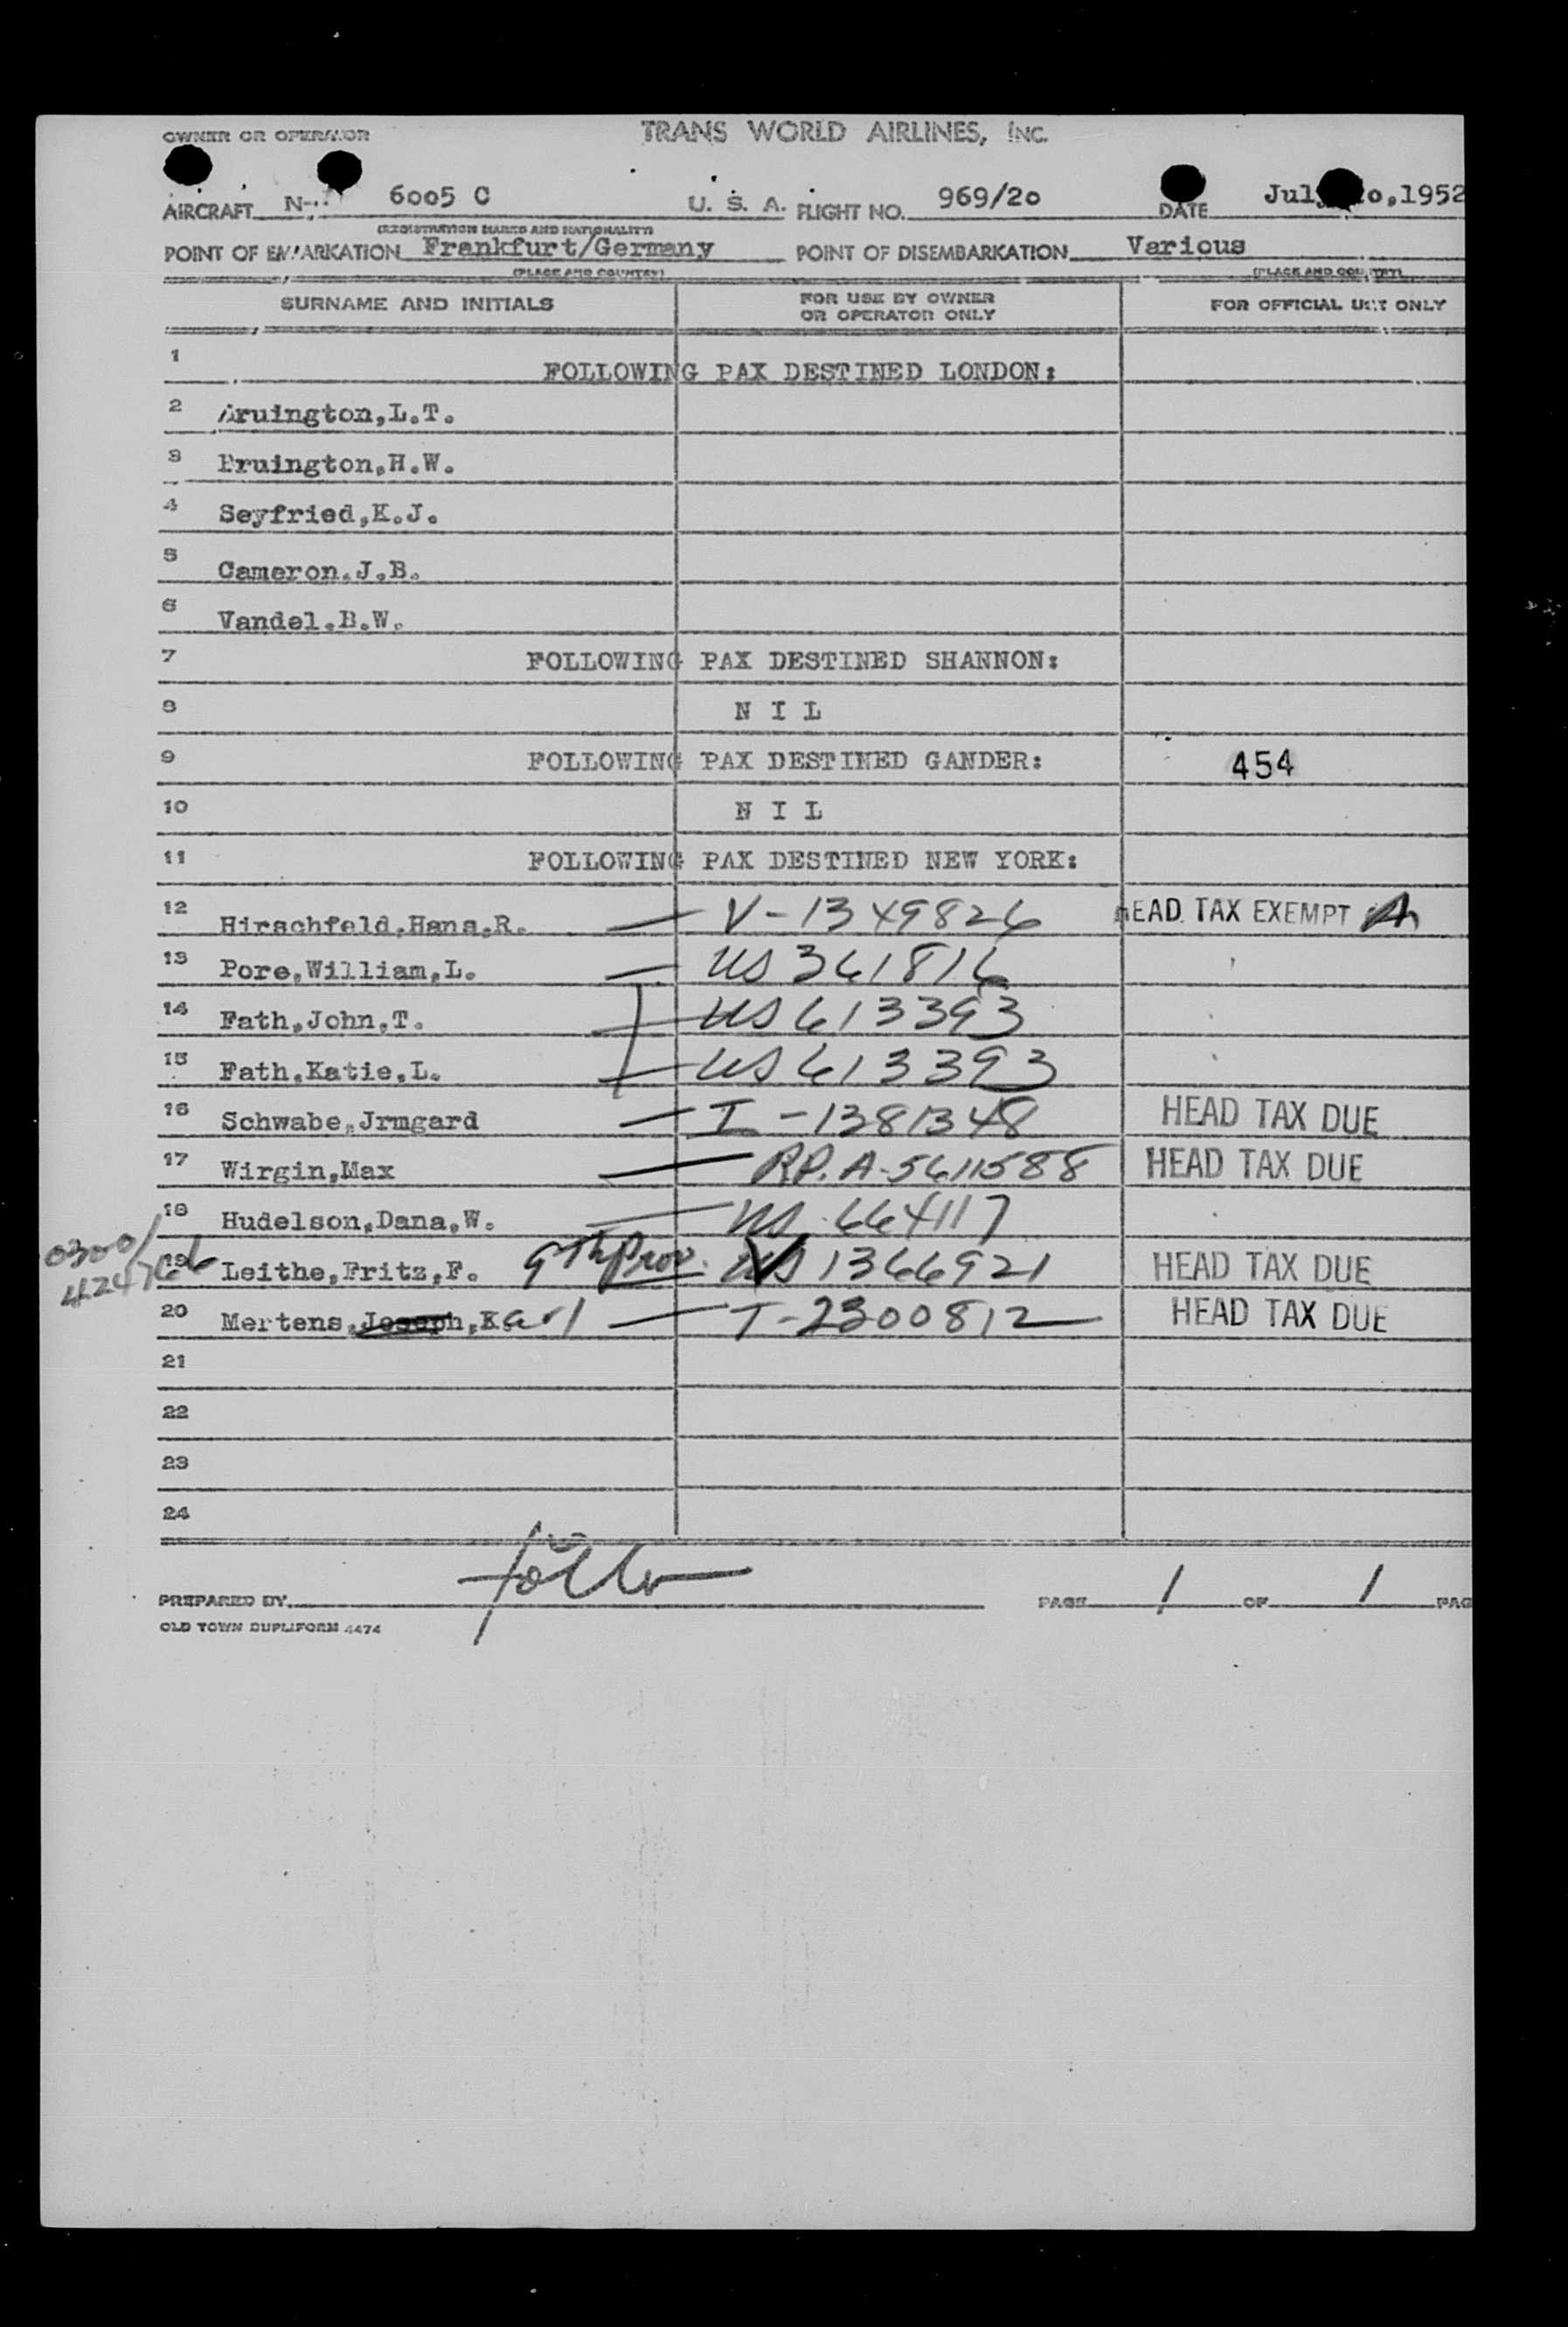 OWNER OR OPERATOR TRANS WORLD AIRLINES, INC.
AIRCRAFT N- 6005 C U. S. A. FLIGHT NO. 969/20 DATE 1952
(REGISTRATION MARKS AND NATIONALITY)
POINT OF EMBARKATION Frankfurt/Germany POINT OF DISEMBARKATION Various
(PLACE AND COUNTRY) (PLACE AND COUNTRY)
SURNAME AND INITIALS FOR USE BY OWNER OR OPERATOR ONLY FOR OFFICIAL USE ONLY
1 FOLLOWING PAX DESTINED LONDON:
2 L.T.
3 H.W.
4 Seyfried,K.J.
5 Cameron.J.B.
6 Vandel.B.W.
7 FOLLOWING PAX DESTINED SHANNON:
8 N I L
9 FOLLOWING PAX DESTINED GANDER: 454
10 N I L
11 FOLLOWING PAX DESTINED NEW YORK:
12 Hirschfeld,Hans,R. — V-1349826 HEAD TAX EXEMPT
13 Pore,William,L. — US 361816
14 Fath,John,T. — US 613393
15 Fath,Katie,L. — US 613393
16 Schwabe,Jrmgard — I-1381348 HEAD TAX DUE
17 Wirgin,Max — RP.A-5611588 HEAD TAX DUE
18 Hudelson,Dana,W. — US 664117
0300/
19 Leithe,Fritz,F. 9th Prov. V 1366921 HEAD TAX DUE
20 Mertens,Joseph,Karl — T-2300812 HEAD TAX DUE
21
22
23
24
PREPARED BY PAGE 1 OF 1 PAG
OLD TOWN DUPLIFORM 4474